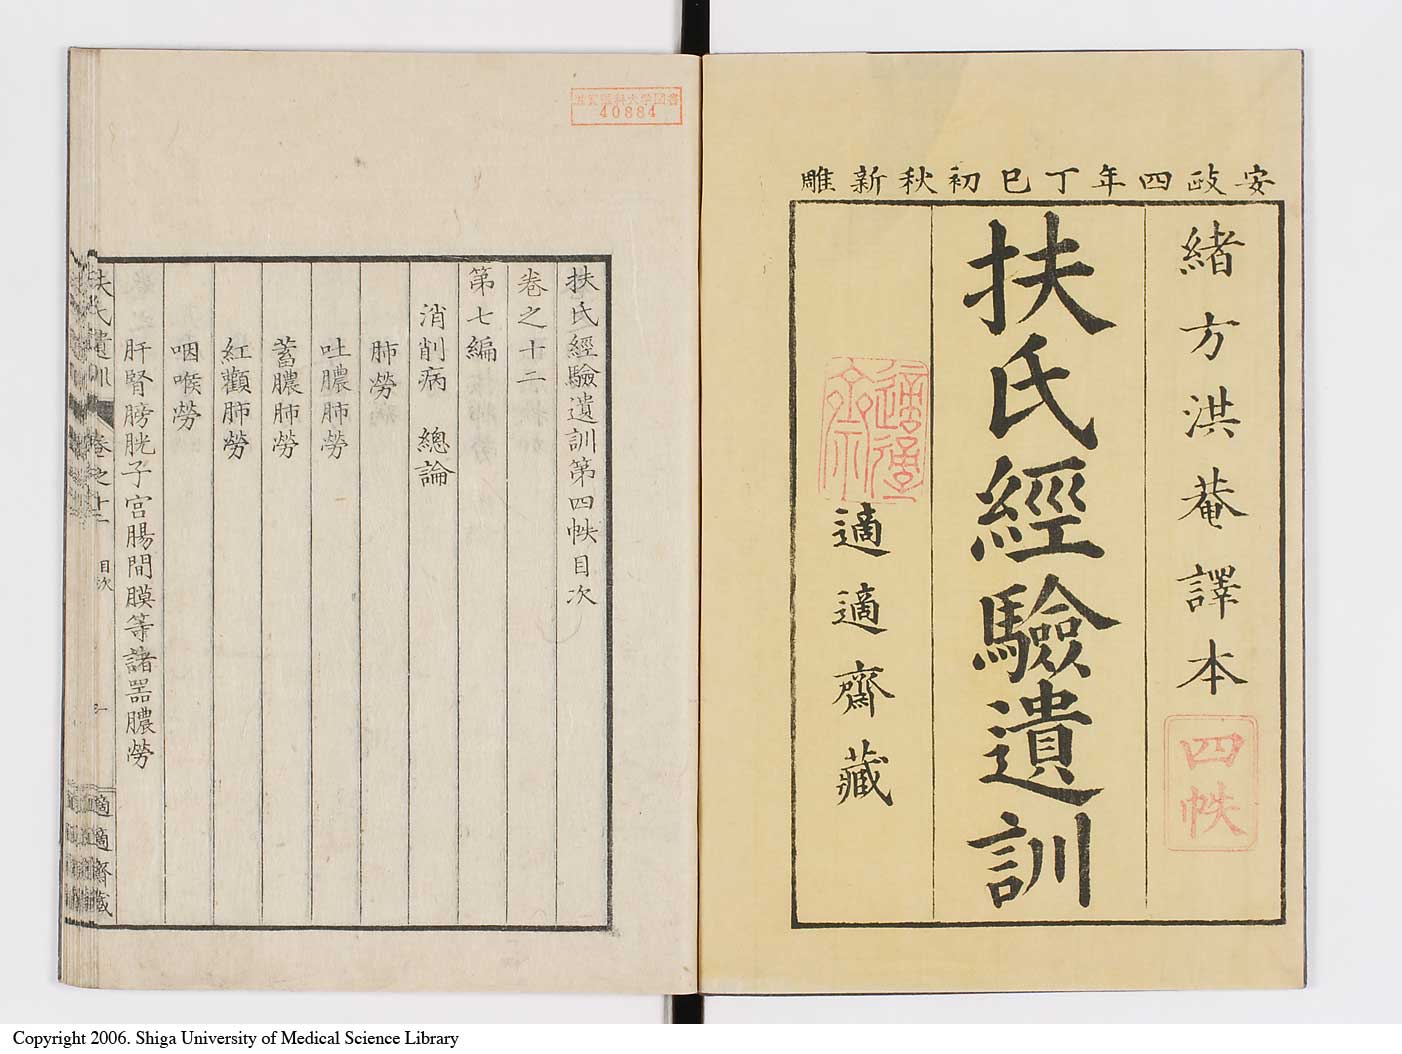 安政四年丁巳初秋新雕
緒方洪菴譯本
四帙
扶氏經驗遺訓
適適齋藏
滋賀医科大学図書
40884
扶氏經驗遺訓第四帙目次
卷之十二
第七編
消削病　總論
肺勞
吐膿肺勞
蓄膿肺勞
紅顴肺勞
咽喉勞
肝腎膀胱子宮腸間膜等諸器膿勞
扶氏遺訓 卷之十二 目次 一 適適齋藏
Copyright 2006. Shiga University of Medical Science Library